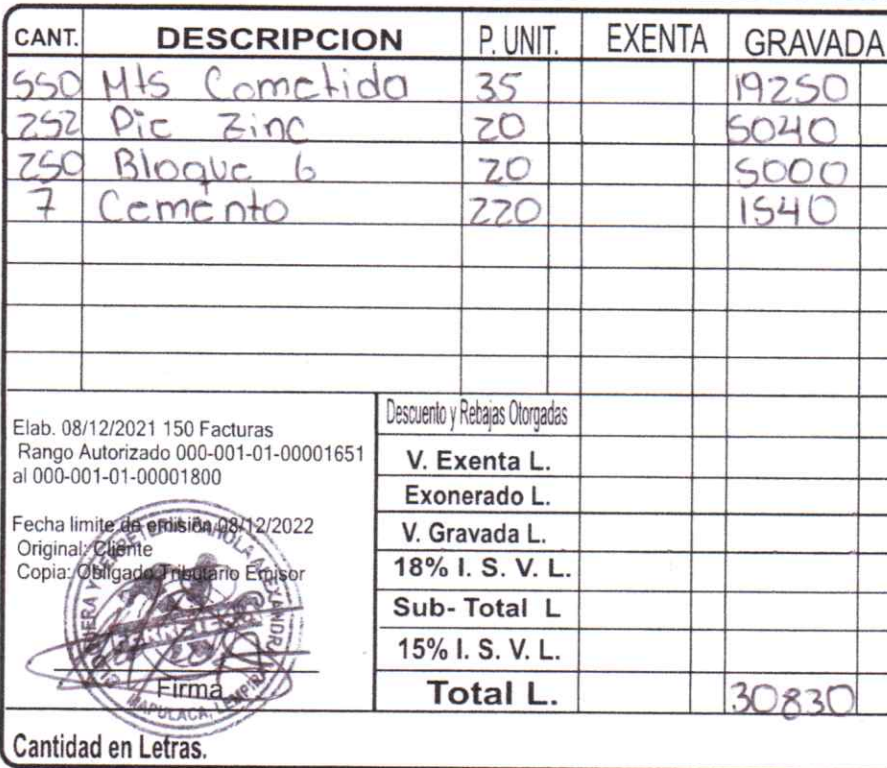 CANT. DESCRIPCION P. UNIT. EXENTA GRAVADA
550 Mts Cometida 35 19250
252 Pie Zinc 20 5040
250 Bloque 6 20 5000
7 Cemento 220 1540
Elab. 08/12/2021 150 Facturas
Rango Autorizado 000-001-01-00001651
al 000-001-01-00001800
Fecha limite de emisión 08/12/2022
Original: Cliente
Copia: Obligado Tributario Emisor
MAPULACA, LEMPIRA
Firma
Descuento y Rebajas Otorgadas
V. Exenta L.
Exonerado L.
V. Gravada L.
18% I. S. V. L.
Sub- Total L
15% I. S. V. L.
Total L. 30830
Cantidad en Letras.